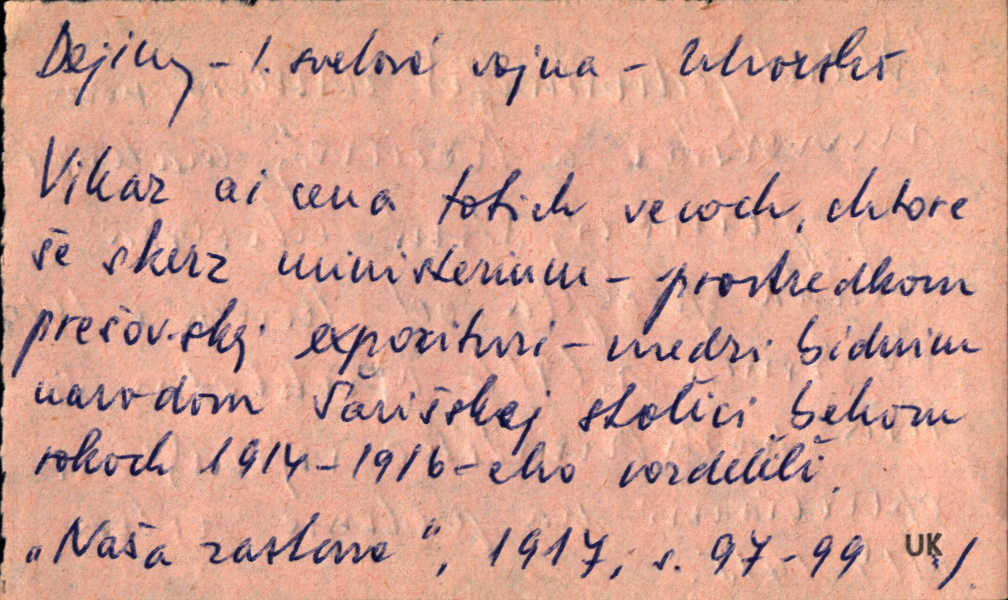 Dejiny – 1. svetová vojna – Uhorsko
Vikaz ai cena totich vecoch, chtore
še skerz ministerium – prostredkom
prešovskej expozituri – medzi bidnim
narodom Šarišskej stolici behom
rokoch 1914–1916–eho rozdelili.
„Naša zastava", 1917, s. 97-99 UK /